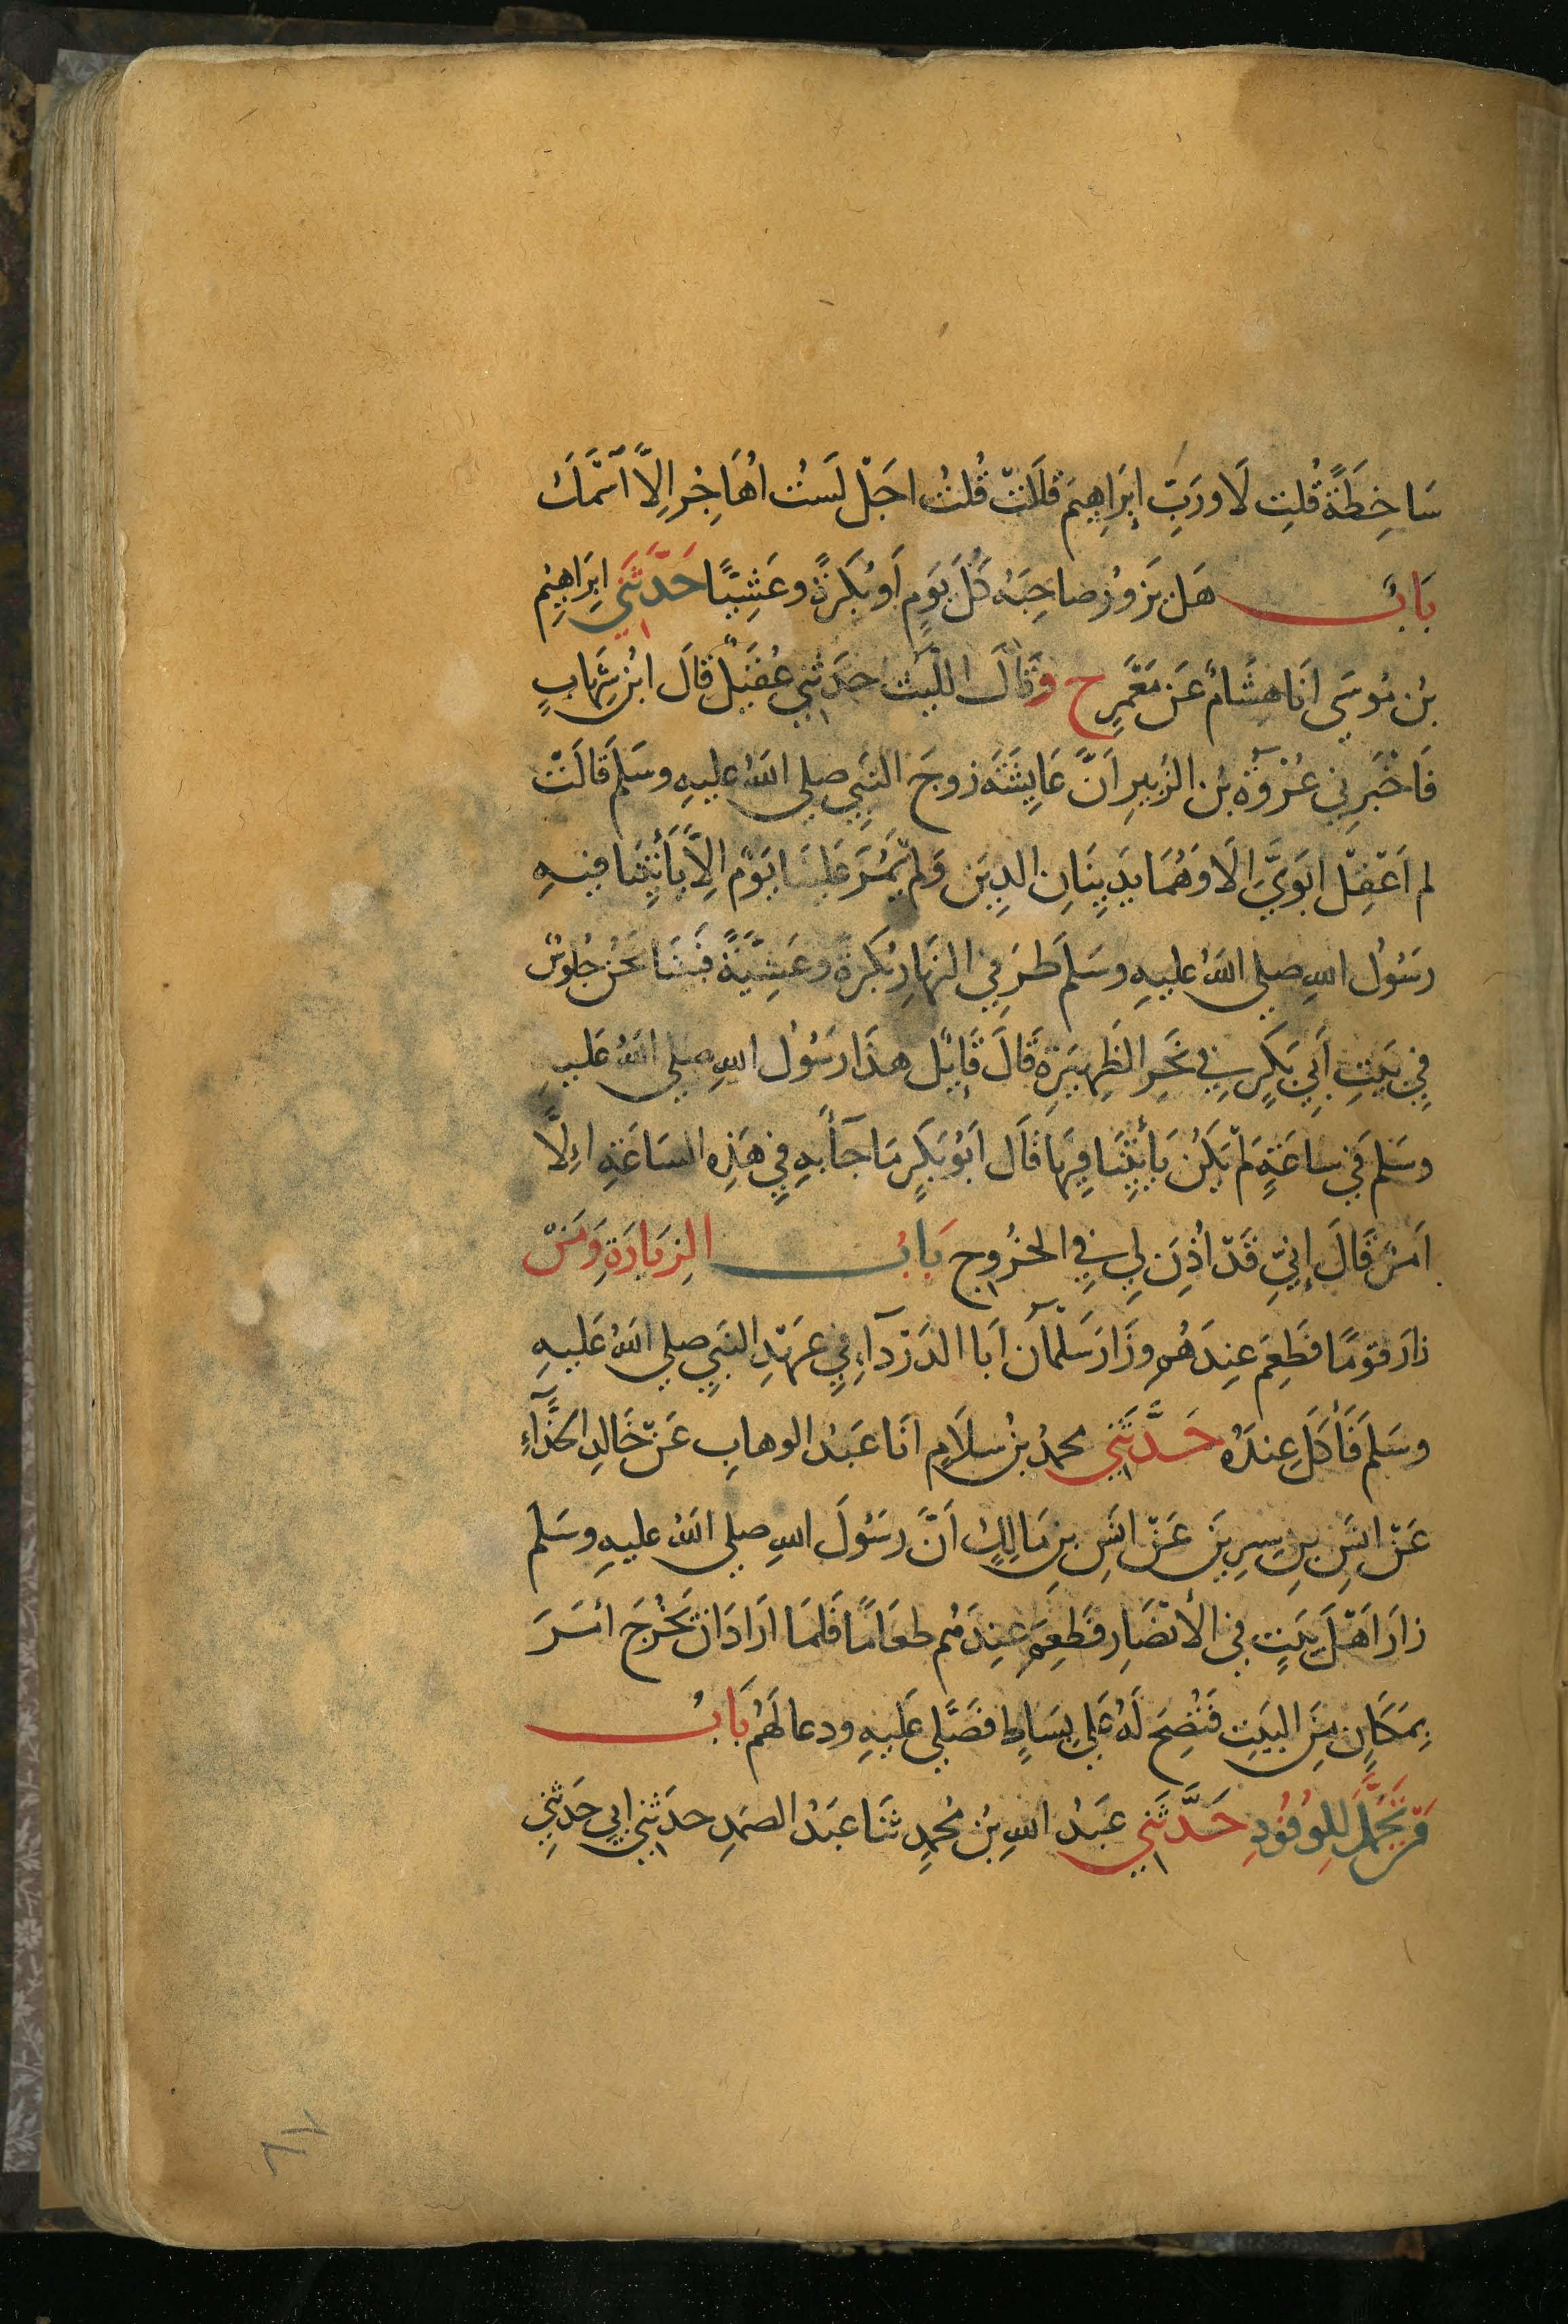 سَاخِطَةً قُلْتِ لَا وَرَبِّ إِبْرَاهِيمَ قَالَتْ قُلْتُ اَجَلْ لَسْتُ اُهَاجِرُ اِلَّا اسْمَكَ
بَابٌ هَلْ يَزُورُ صَاحِبَهُ كُلَّ يَوْمٍ اَوْ بُكْرَةً وعَشِيًّا حَدَّثَنِي ابْرَاهِيْم
بْنُ مُوسَى انَا هِشَامٌ عَنْ مَعْمَرٍ ح وَقَالَ اللَّيْثُ حَدَثَنِي عُقَيْلٌ قَالَ ابْنُ شِهَابٍ
فَاخْبَرَنِي عُرْوَةُ بْنُ الزُبَيرِ اَنَّ عَايِشَةَ زوجَ النَبِيِّ صلى اللهُ عليهِ وسَلمَ قَالَتْ
لم اَعْقِلْ ابَوَيَّ الَا وَهُمَا يَدِينَانِ الدِينَ وَلَمْ يَمُرَّ عَلَيْنَا يَوْمٌ اِلَّا يَأْتِيْنَا فِيْهِ
رَسُوْل اللهِ صلى اللهُ عليهِ وسَلمَ طَرَفِي النَهَارِ بُكْرَةً وعَشِيَّةً فَبَيْنَا نَحْنُ جُلُوسٌ
فِي بَيْتِ أَبِي بَكْرٍ فِي نَحْرِ الظَهِيْرَةِ قَالَ قَايِلٌ هذَا رَسُوْلُ اللهِ صلى اللهُ عَليهِ
وسَلمَ في ساعَةٍ لَمْ يَكُنْ يَأْتِيْنَا فِيهَا قَال اَبُوْ بَكْرٍ مَا جَآءَ بِهِ فِي هَذِهِ السَاعَةِ اِلَّا
اَمْرٌ قَالَ إِنِّي قَدْ اُذِنَ لِي فِي الخُرُوجِ بَابُ الزِيَارَةِ وَمَنْ
زارَ قوْمًا فَطَعِمَ عِنْدَهُم وزَارَ سَلْمَانُ اَبَا الدَرْدَآءِ فِي عَهْدِ النَبِيِ صلى اللهُ عَليهِ
وسَلمَ فَأَكَلَ عِندَهُ حَدَّثَنِي محمدُ بْنُ سلَامٍ انَا عَبْدُ الوهابِ عَنْ خَالِدٍ الحَذَّآءِ
عَنْ انَسِ بْنِ سِيرِيْنَ عَنْ انَسِ بنِ مَالِكٍ اَنَّ رَسُولَ اللهِ صلى اللهُ عليهِ وسَلمَ
زارَ اَهْلَ بَيْتٍ في الأنْصَارِ فَطَعِمَ عِنْدَهُم طعَامًا فَلمَا ارَادَ انْ يَخْرُجَ أمَرَ
بِمَكَانٍ مِنَ البَيْتِ فَنُضِحَ لَهُ عَلى بِسَاطٍ فَصَلَّى عَليْهِ ودعا لَهُمْ بَابُ
مَنْ تَجَمَّلَ لِلوُفُوْدِ حَدَّثَنِي عَبْدُ اللهِ بْنُ مُحَمدٍ ثَنَا عَبْدُ الصَمَدِ حدَثَنِي ابِي حَدَثَنِي
٨٧